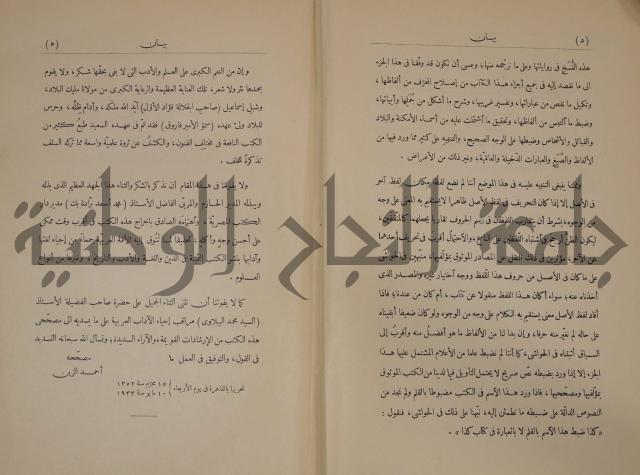 (٥)
بيان
هذه النسخ في رواياتها وعلى ما نرجحه منها؛ وعسى أن نكون قد وفقنا في هذا الجزء
إلى ما نقصد إليه في جميع أجزاء هذا الكتاب من إصلاح لمحرف من ألفاظها،
وتكميل ما نقص من عباراتها، وتفسير غريبها، وشرح ما أشكل من جملها وأبياتها،
وضبط ما ألتبس من ألفاظها، وتحقيق ما آشتملت عليه من أسماء الأمكنة والبلاد
والقبائل والأشخاص وضبطها على الوجه الصحيح، والتنبيه على كثير مما ورد فيها من
الألفاظ والصيغ والعبارات الدخيلة والعامية، وغير ذلك من الأغراض.
ومما ينبغي التنبيه عليه في هذا الموضع أننا لم نضع لفظا مكان لفظ آخر
في الأصل إلا إذا كان التحريف في لفظ الأصل ظاهرا لا يستقيم به المعنى على وجه
من الوجوه، بشرط أن يتقارب اللفظان في رسم الحروف
ليكون الظن أرجح في آشتباه اللفظين على الناسخ، والاحتمال أقرب في تحريف أحدهما
عن الآخر، مؤثرين في ذلك النقل عن المصادر الموثوق بمؤلفيها، منبهين في الحواشي
على ما كان في الأصل من حروف هذا اللفظ ووجه آختيار غيره والمصدر الذي
أخذناه عنه، سواء أكان هذا اللفظ منقولا عن كتاب، أم كان من عندنا؛ فاذا
أفاد لفظ الأصل معنى يستقيم به الكلام على وجه من الوجوه ولو كان ضعيفا أبقيناه
على حاله لم نغير منه حرفا، وإن بدا لنا من الألفاظ ما هو أفضل منه وأقرب إلى
السياق أثبتناه في الحواشي، كما أننا لم نضبط علما من الأعلام المشتمل عليها هذا
الجزء إلا إذا ورد بضبطه نص صريح لا يحتمل التأويل فيما لدينا من الكتب الموثوق
بمؤلفيها ومصححيها، فاذا ورد هذا الآسم في الكتب مضبوطا بالقلم ولم نجد من
النصوص الدالة على ضبطه ما نطمئن إليه، نبهنا على ذلك في الحواشي، فنقول:
«كذا ضبط هذا الآسم بالقلم لا بالعبارة في كتاب كذا».
بيان
(٥)
وإن من النعم الكبرى على العلم والأدب التي لا يفي بحقها شكر، ولا يقوم
بحمدها نثر ولا شعر، تلك العناية العظيمة والرعاية الكبرى من مولانا مليك البلاد،
وشبل إسماعيل (صاحب الجلالة فؤاد الأول) أيد الله ملكه، وأدام ظله، وحرس
للبلاد ولي عهده (سمو الأمير فاروق) فقد تم في عهده السعيد طبع كثير من
الكتب النافعة في مختلف الفنون، والكشف عن ثروة علمية واسعة مما تركه السلف
تذكرة للخلف.
ولا يفوتنا في هذا المقام أن نذكر بالشكر والثناء هذا الجهد العظيم الذي بذله
ويبذله المدير الحازم والمربي الفاضل الأستاذ (محمد أسعد برادة بك) مدير دار
الكتب المصرية، واهتمامه الصادق بإخراج هذه الكتب في أقرب وقت ممكن
على أحسن وجه وأكمله، تحقيقا لما تتوق إليه الأمة العربية جمعاء من إحياء لغتها
وآدابها بنشر الكتب القيمة في الدين واللغة والأدب والتاريخ، وغيرها من أنواع
العلوم.
كما لا يفوتنا أن نثني الثناء الجميل على حضرة صاحب الفضيلة الأستاذ
(السيد محمد الببلاوي) مراقب إحياء الآداب العربية على ما يسديه الى مصححي
هذه الكتب من الإرشادات القويمة، والآراء السديدة؛ ونسأل الله سبحانه التسديد
في القول، والتوفيق في العمل ما
مصححه
أحمد الزين
تحريرا بالقاهرة في يوم الأربعاء ١٥ محرم سنة ١٣٥٢
١٠ مايو سنة ١٩٣٣
جامعة النجاح الوطنية